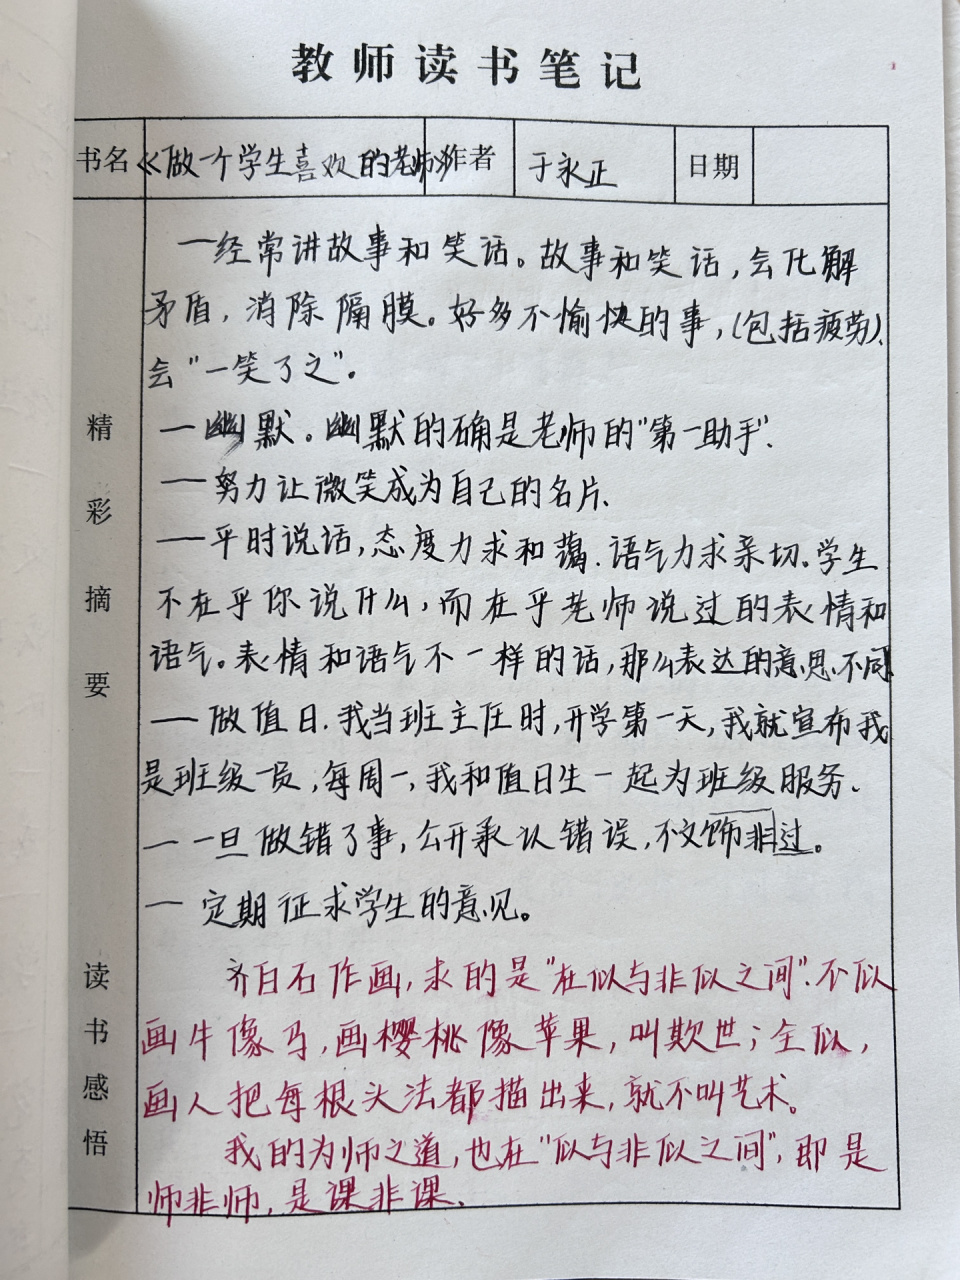 教师读书笔记
书名 《做一个学生喜欢的老师》 作者 于永正 日期
精彩摘要
一经常讲故事和笑话。故事和笑话,会化解
矛盾,消除隔膜。好多不愉快的事,(包括疲劳)、
会"一笑了之"。
一幽默。幽默的确是老师的"第一助手".
一努力让微笑成为自己的名片.
一平时说话,态度力求和蔼.语气力求亲切。学生
不在乎你说什么,而在乎老师说过的表情和
语气。表情和语气不一样的话,那么表达的意思不同
一做值日.我当班主任时,开学第一天,我就宣布我
是班级一员,每周一,我和值日生一起为班级服务.
一一旦做错了事,公开承认错误,不文饰非过。
一定期征求学生的意见。
读书感悟
齐白石作画,求的是"在似与非似之间".不似
画牛像马,画樱桃像苹果,叫欺世;全似,
画人把每根头法都描出来,就不叫艺术。
我的为师之道,也在"似与非似之间",即是
师非师,是课非课.